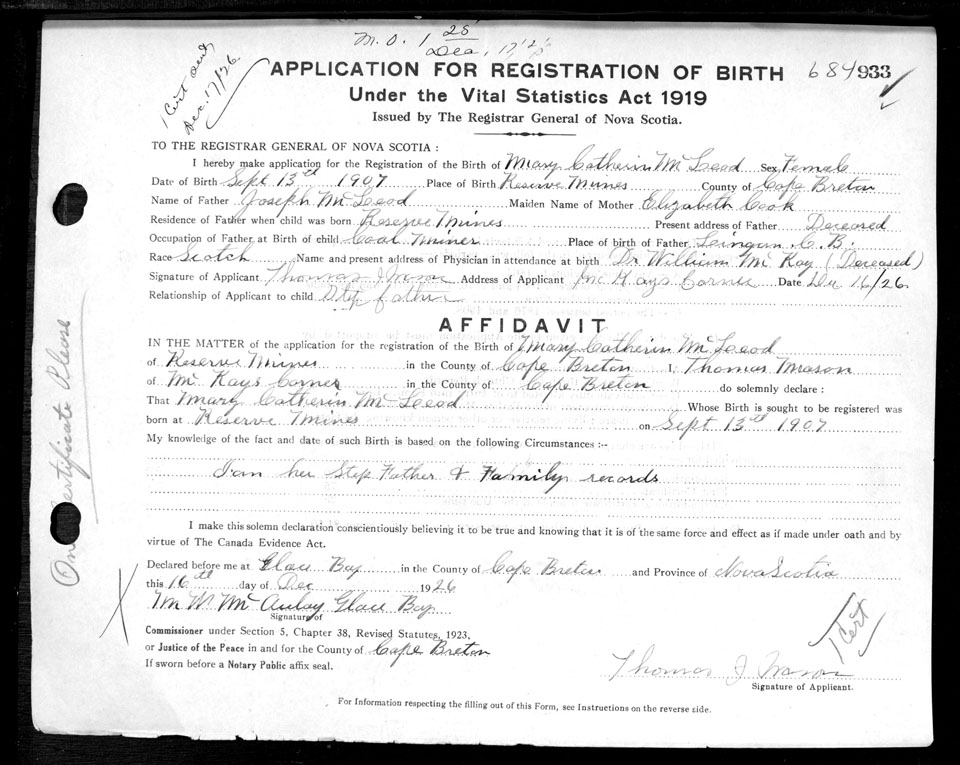 M.O. 1 25
Dec, 17'
1 Cert and
Dec. 17/26
APPLICATION FOR REGISTRATION OF BIRTH 684933
Under the Vital Statistics Act 1919
Issued by The Registrar General of Nova Scotia.
TO THE REGISTRAR GENERAL OF NOVA SCOTIA :
I hereby make application for the Registration of the Birth of Mary Catherin McLeod Sex Female
Date of Birth Sept 13th 1907 Place of Birth Reserve Mines County of Cape Breton
Name of Father Joseph McLeod Maiden Name of Mother Elizabeth Cook
Residence of Father when child was born Reserve Mines Present address of Father Deceased
Occupation of Father at Birth of child Coal Miner Place of birth of Father Lingan C.B.
Race Scotch Name and present address of Physician in attendance at birth Dr William McKay (Deceased)
Signature of Applicant Thomas J Mason Address of Applicant McKays Corner Date Dec 16/26
Relationship of Applicant to child Step father
AFFIDAVIT
IN THE MATTER of the application for the registration of the Birth of Mary Catherin McLeod
of Reserve Mines in the County of Cape Breton I, Thomas Mason
of McKays Corner in the County of Cape Breton do solemnly declare :
That Mary Catherin McLeod Whose Birth is sought to be registered was
born at Reserve Mines on Sept 13th 1907
My knowledge of the fact and date of such Birth is based on the following Circumstances :--
I am her Step Father & Family records
I make this solemn declaration conscientiously believing it to be true and knowing that it is of the same force and effect as if made under oath and by
virtue of The Canada Evidence Act.
Declared before me at Glace Bay in the County of Cape Breton and Province of Nova Scotia
this 16th day of Dec 1926
McAulay Glace Bay
Signature of
Commissioner under Section 5, Chapter 38, Revised Statutes, 1923,
or Justice of the Peace in and for the County of Cape Breton
If sworn before a Notary Public affix seal.
1 Cert
Thomas J Mason
Signature of Applicant.
For Information respecting the filling out of this Form, see Instructions on the reverse side.
One Certificate Please